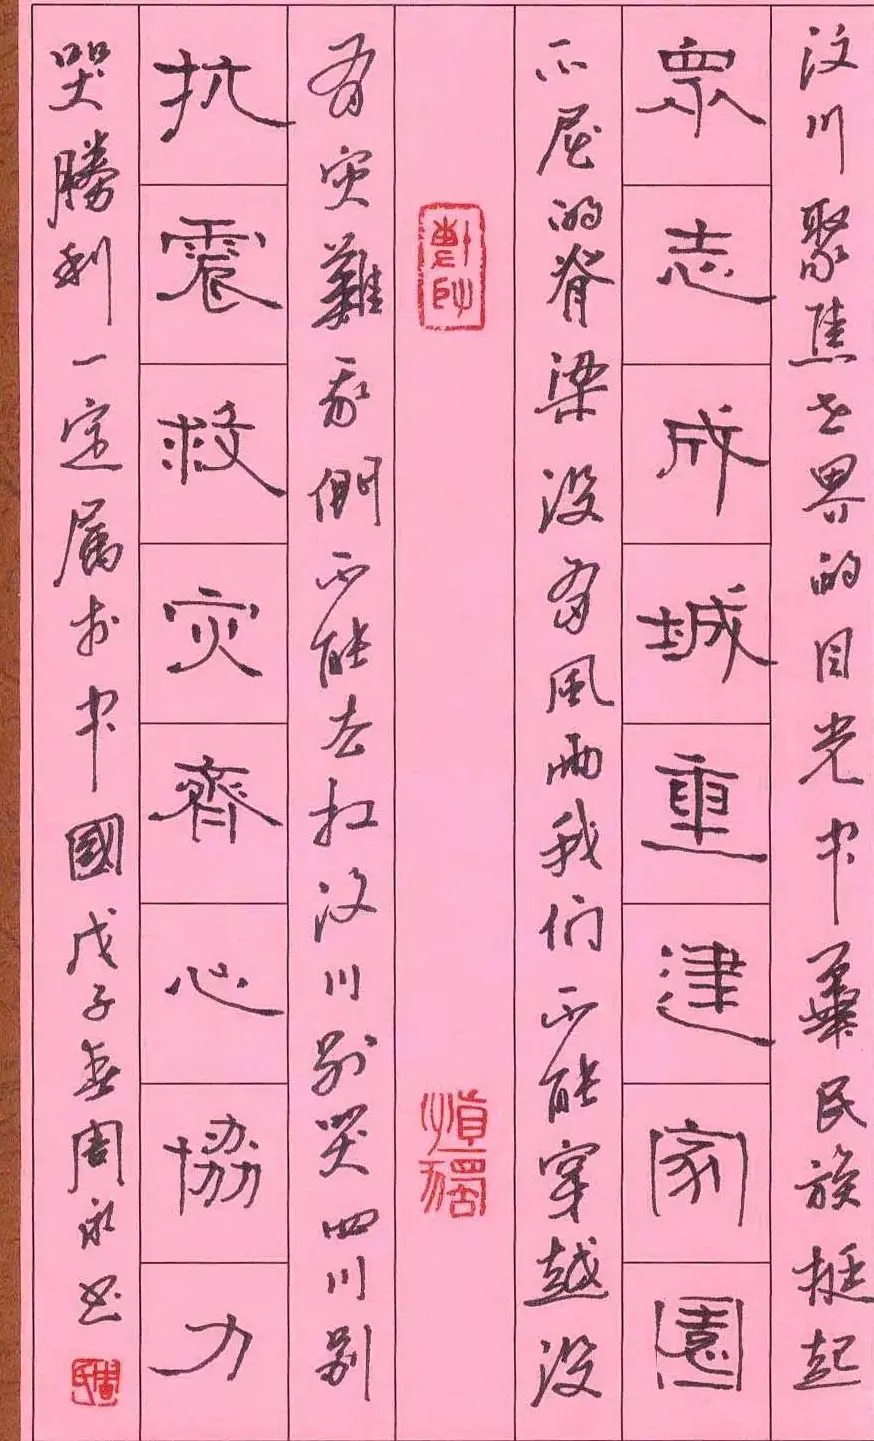 汶川聚焦世界的目光中華民族挺起
眾志成城重建家園
不屈的脊梁没有風雨我们不能穿越没
有灾難我們不能去扛汶川别哭四川别
抗震救灾齊心協力
哭勝利一定属於中國戊子春周永书
慎獨